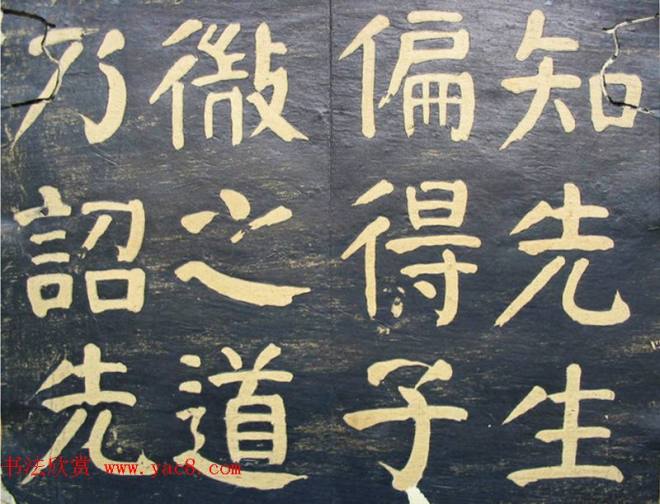 知先生
偏得子
微之道
乃詔先
书法欣赏 www.yac8.com